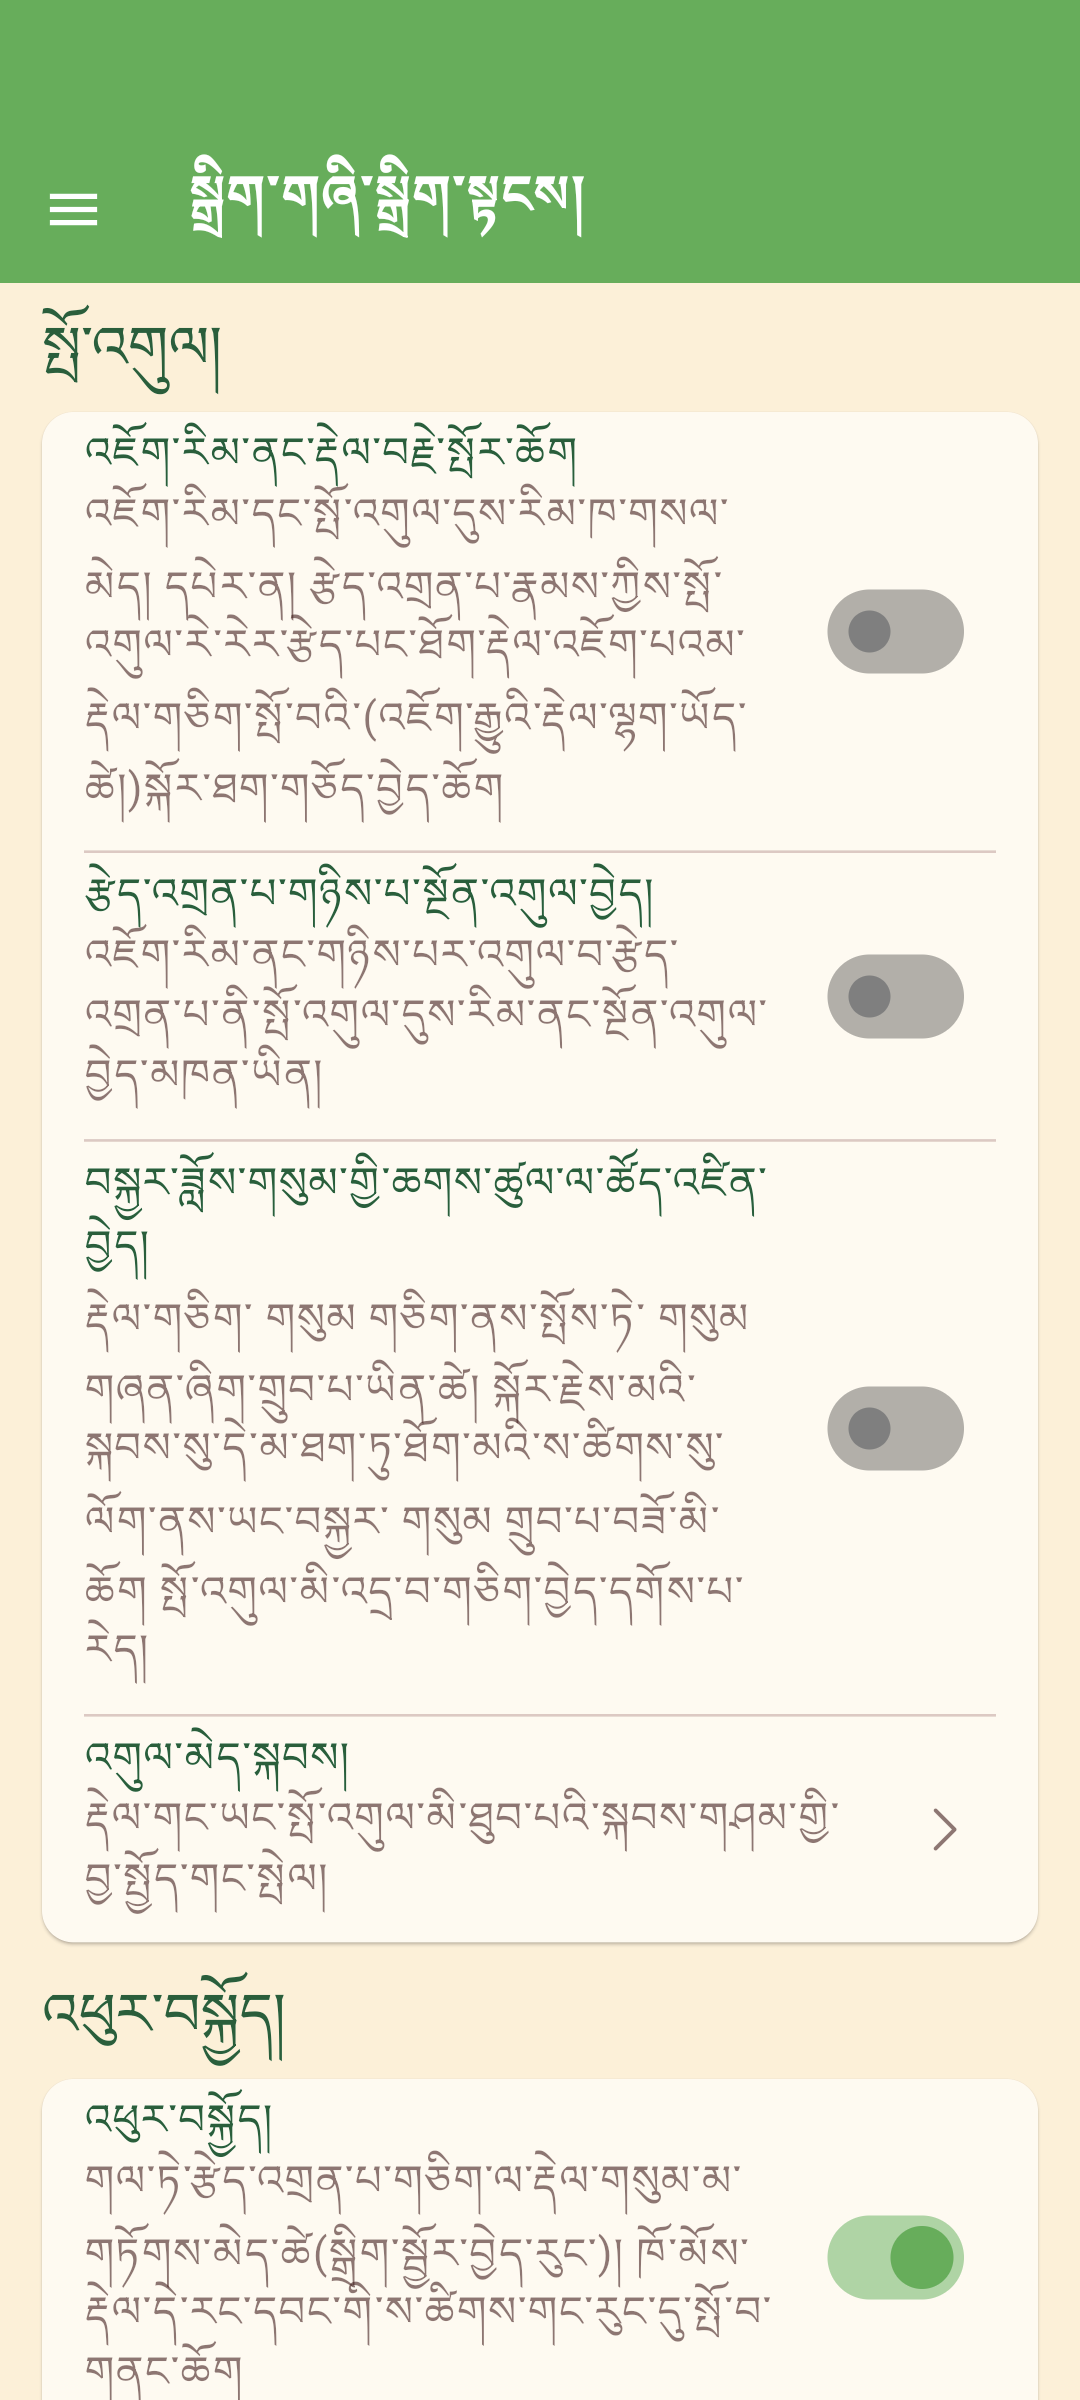 སྒྲིག་གཞི་སྒྲིག་སྟངས།
སྤོ་འགུལ།
འཇོག་རིམ་ནང་རྡེལ་བརྗེ་སྤོར་ཆོག
འཇོག་རིམ་དང་སྤོ་འགུལ་དུས་རིམ་ཁ་གསལ་
མེད། དཔེར་ན། རྩེད་འགྲན་པ་རྣམས་ཀྱིས་སྤོ་
འགུལ་རེ་རེར་རྩེད་པང་ཐོག་རྡེལ་འཇོག་པའམ་
རྡེལ་གཅིག་སྤོ་བའི་(འཇོག་རྒྱུའི་རྡེལ་ལྷག་ཡོད་
ཚེ།)སྐོར་ཐག་གཅོད་བྱེད་ཆོག
རྩེད་འགྲན་པ་གཉིས་པ་སྔོན་འགུལ་བྱེད།
འཇོག་རིམ་ནང་གཉིས་པར་འགུལ་བ་རྩེད་
འགྲན་པ་ནི་སྤོ་འགུལ་དུས་རིམ་ནང་སྔོན་འགུལ་
བྱེད་མཁན་ཡིན།
བསྐྱར་ཟློས་གསུམ་གྱི་ཆགས་ཚུལ་ལ་ཚོད་འཛིན་
བྱེད།
རྡེལ་གཅིག་ གསུམ གཅིག་ནས་སྤོས་ཏེ་ གསུམ
གཞན་ཞིག་གྲུབ་པ་ཡིན་ཚེ། སྐོར་རྗེས་མའི་
སྐབས་སུ་དེ་མ་ཐག་ཏུ་ཐོག་མའི་ས་ཚིགས་སུ་
ལོག་ནས་ཡང་བསྐྱར་ གསུམ གྲུབ་པ་བཟོ་མི་
ཆོག སྤོ་འགུལ་མི་འདྲ་བ་གཅིག་བྱེད་དགོས་པ་
རེད།
འགུལ་མེད་སྐབས།
རྡེལ་གང་ཡང་སྤོ་འགུལ་མི་ཐུབ་པའི་སྐབས་གཤམ་གྱི་
བྱ་སྤྱོད་གང་སྤེལ།
འཕུར་བསྐྱོད།
འཕུར་བསྐྱོད།
གལ་ཏེ་རྩེད་འགྲན་པ་གཅིག་ལ་རྡེལ་གསུམ་མ་
གཏོགས་མེད་ཚེ(སྒྲིག་སྦྱོར་བྱེད་རུང་)། ཁོ་མོས་
རྡེལ་དེ་རང་དབང་གི་ས་ཚིགས་གང་རུང་དུ་སྤོ་བ་
གནང་ཆོག